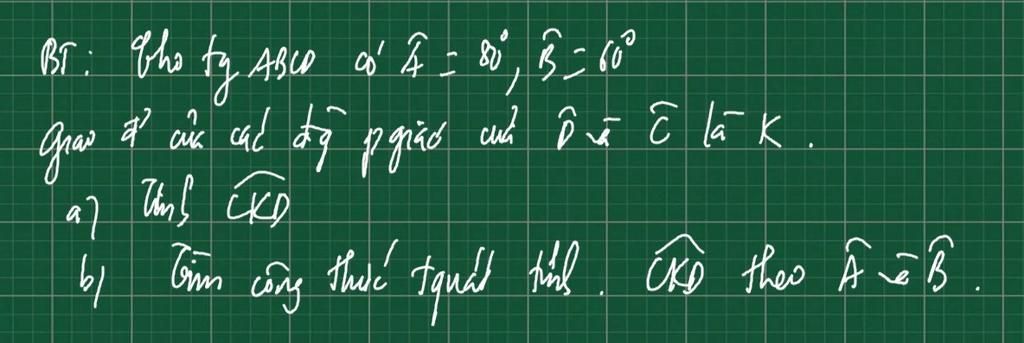 BT: Cho tg ABCD có Â = 80°, B̂ = 60°
Giao đ' của các đg p giác của D̂ và Ĉ là K.
a) Tính \widehat{CKD}
b) Tìm công thức tquát tính. \widehat{CKD} theo Â và B̂.